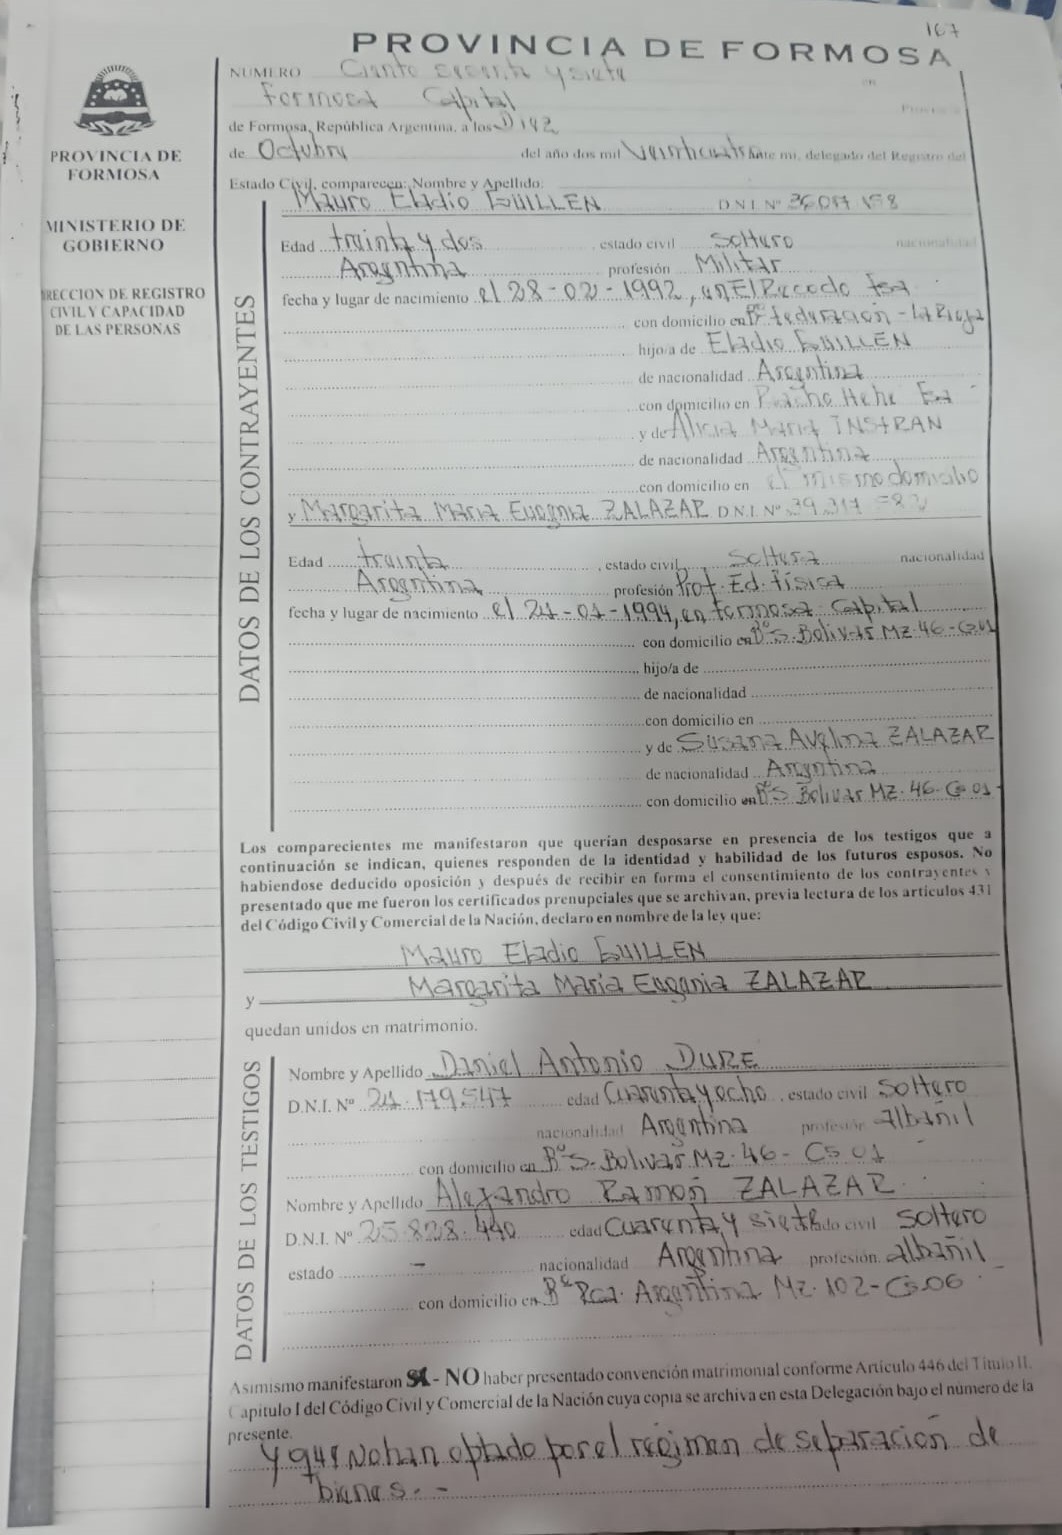 167
PROVINCIA DE FORMOSA
PROVINCIA DE
FORMOSA
MINISTERIO DE
GOBIERNO
RECCION DE REGISTRO
CIVIL Y CAPACIDAD
DE LAS PERSONAS
NUMERO Ciento sesenta y siete en
Formosa Capital Provincia
de Formosa, República Argentina, a los
de Octubre del año dos mil Veinticuatro ante mi, delegado del Registro del
Estado Civil, comparecen: Nombre y Apellido:
Mauro Eladio GUILLEN D.N.I. Nº
DATOS DE LOS CONTRAYENTES
Edad treinta y dos , estado civil Soltero nacionalidad
Argentina profesión Militar
fecha y lugar de nacimiento el 28-02-1992, en El Recodo Fsa
con domicilio en Bº Federación - La Rioja
hijo/a de Eladio GUILLEN
de nacionalidad Argentina
con domicilio en He he Fsa
y de Alicia Maria INSFRAN
de nacionalidad Argentina
con domicilio en el mismo domicilio
y Margarita Maria Eugenia ZALAZAR D.N.I. Nº
Edad treinta , estado civil Soltera nacionalidad
Argentina profesión Prof. Ed. Física
fecha y lugar de nacimiento el 24-01-1994, en Formosa Capital
con domicilio en Bº S. Bolivar Mz. 46 - Cs 01
hijo/a de
de nacionalidad
con domicilio en
y de Susana Avelina ZALAZAR
de nacionalidad Argentina
con domicilio en Bº S Bolivar Mz. 46 - Cs 01
Los comparecientes me manifestaron que querían desposarse en presencia de los testigos que a
continuación se indican, quienes responden de la identidad y habilidad de los futuros esposos. No
habiendose deducido oposición y después de recibir en forma el consentimiento de los contrayentes y
presentado que me fueron los certificados prenupciales que se archivan, previa lectura de los artículos 431
del Código Civil y Comercial de la Nación, declaro en nombre de la ley que:
Mauro Eladio GUILLEN
y Margarita Maria Eugenia ZALAZAR
quedan unidos en matrimonio.
DATOS DE LOS TESTIGOS
Nombre y Apellido Daniel Antonio DURE
D.N.I. Nº 24.179.547 edad Cuarenta y ocho , estado civil Soltero
nacionalidad Argentina profesión albañil
con domicilio en Bº S. Bolivar Mz. 46 - Cs 01
Nombre y Apellido Alejandro Ramón ZALAZAR
D.N.I. Nº 25.828.440 edad Cuarenta y siete estado civil Soltero
estado - nacionalidad Argentina profesión. albañil
con domicilio en Bº Rca. Argentina Mz. 102 - Cs 06
Asimismo manifestaron SI - NO haber presentado convención matrimonial conforme Artículo 446 del Titulo II,
Capitulo I del Código Civil y Comercial de la Nación cuya copia se archiva en esta Delegación bajo el número de la
presente.
y que No han optado por el regimen de separación de
bienes. -